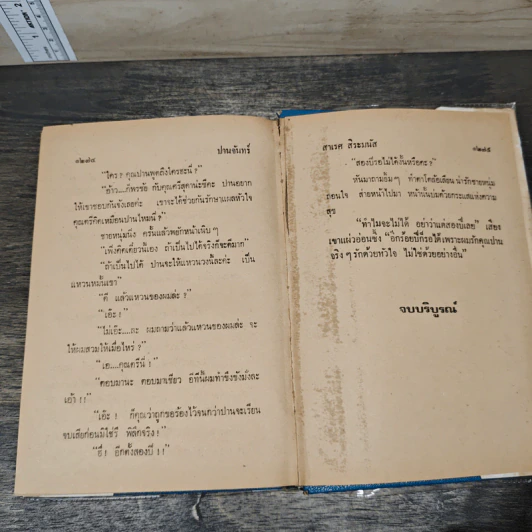 ๑๒๗๔ ปานจันทร์
"ใคร ? คุณปานพูดถึงใครฮะนี่ ?"
"อ้าว....ก็พรชัย กับคุณศรีสุดาน่ะซีคะ ปานอยาก
ให้เขาชอบกันจังเลยค่ะ เขาจะได้ช่วยกันรักษาแผลหัวใจ
คุณศรีคิดเหมือนปานไหมนี่ ?"
ชายหนุ่มนิ่ง ครั้นแล้วพยักหน้าเนิบ ๆ
"เพิ่งคิดเดี๋ยวนี้เอง ถ้าเป็นไปได้จริงก็จะดีมาก"
"ถ้าเป็นไปได้ ปานจะให้แหวนวงนี้ละค่ะ เป็น
แหวนหมั้นเขา"
"ดี แล้วแหวนของผมล่ะ ?"
"เอ๊ะ !
"ไม่เอ๊ะ....ละ ผมถามว่าแล้วแหวนของผมล่ะ จะ
ให้ผมสวมให้เมื่อไหร่ ?
"เอ....คุณศรีนี่ !"
"ตอบมานะ ตอบมาเชียว อีทีนี้ผมทำขึงขังมั่งละ
เอ้า !!"
"เอ๊ะ ! ก็คุณว่าถูกขอร้องไว้จนกว่าปานจะเรียน
จบเสียก่อนมิใช่รึ พิลึกจริง !
"ฮึ ! อีกตั้งสองปี !!"
สาเรศ สิระมนัส ๑๒๗๕
"สองปีรอไม่ได้งั้นหรือคะ ?"
หันมาถามยิ้ม ๆ ทำตาโตล้อเลียน น่ารักชายหนุ่ม
ถอนใจ ส่ายหน้าไปมา หน้านั้นปมด้วยกระแสแห่งความ
สุข
"ทำไมจะไม่ได้ อย่าว่าแต่สองปีเลย" เสียง
เขาแผ่วอ่อนซึ้ง "อีกร้อยปีก็รอได้เพราะผมรักคุณปาน
จริง ๆ รักด้วยหัวใจ ไม่ใช่ด้วยอย่างอื่น"
จบบริบูรณ์